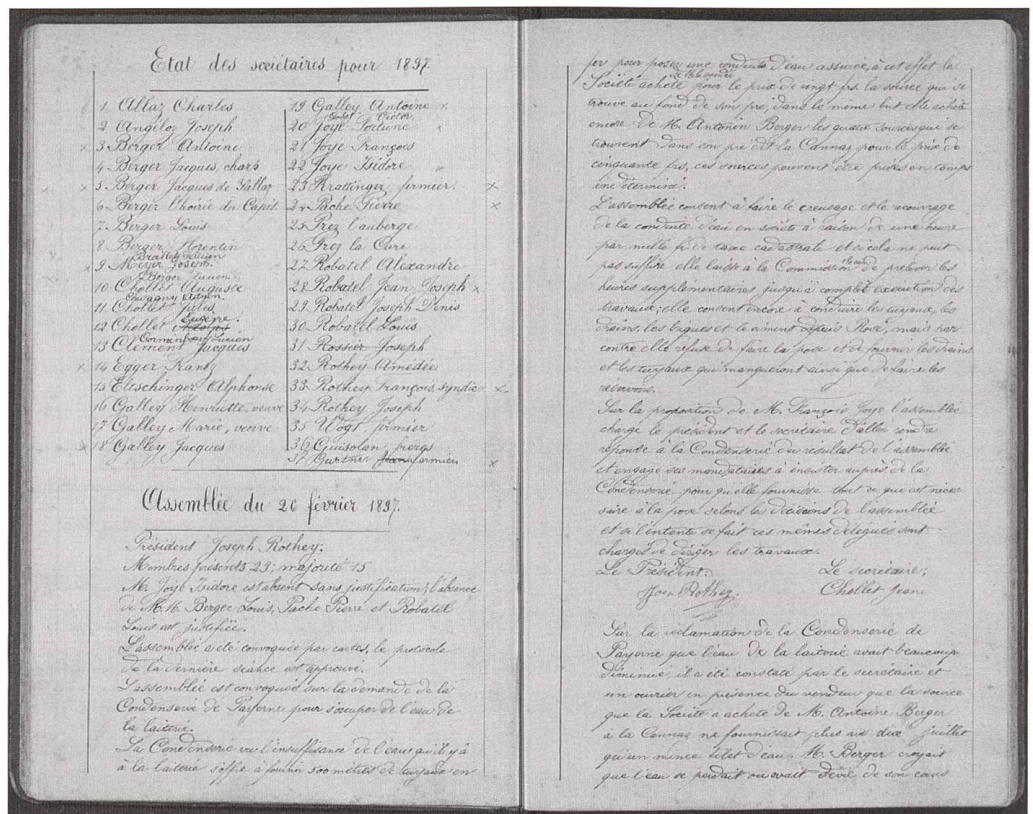 Etat des sociétaires pour 1897
1 Allaz Charles
2 Angéloz Joseph
3 Berger Antoine
4 Berger Jacques, chars
5 Berger Jacques de Pallaz
6 Berger Choirie du Capit.
7 Berger Louis
8 Berger Florentin
Lucien
9 Meyer Joseph
Berger Lucien
10 Chollet Auguste
Chuagny
11 Chollet Jules
Eugène.
12 Chollet
Lucien
13 Clément Jacques
14 Egger Frantz
15 Eltschinger Alphonse
16 Galley Henriette, veuve
17 Galley Marie, veuve
18 Galley Jacques
19 Galley Antoine
Victor
20 Joye Fortuné
21 Joye François
22 Joye Isidore
23 Krattinger fermier.
24 Poche Pierre
25 Prez l'auberge
26 Prez la Cure
27 Robatel Alexandre
28 Robatel Jean Joseph
29 Robatel Joseph Denis
30 Robatel Louis
31 Rossier Joseph
32 Rothey Amédée
33 Rothey François, syndic
34 Rothey Joseph
35 Vögt fermier
36 Guisolan
37 fermier
Assemblée du 20 février 1897.
Président Joseph Rothey:
Membres présents 29; majorité 15
M. Joye Isidore est absent sans justification; l'absence
de M.M. Berger Louis, Poche Pierre et Robatel
Louis est justifiée.
L'assemblée a été convoquée par cartes, le protocole
de la dernière séance est approuvé.
L'assemblée est convoquée sur la demande de la
Condenserie de Payerne pour s'occuper de l'eau de
la laiterie.
La Condenserie vu l'insuffisance de l'eau qu'il y a
à la laiterie s'offre à fournir 500 mètres de tuyaux en
fer pour poser une conduite d'eau assurée, à cet effet la
Société achète pour le prix de vingt frs la source qui se
trouve au fond de son pré, dans le même but elle achète
encore de M. Antonin Berger les quatre sources qui se
trouvent dans son pré dit la Cannaz pour le prix de
cinquante frs, ces sources pouvant être prises en temps
indéterminé.
L'assemblée consent à faire le creusage et le recouvrage
de la conduite d'eau en société à raison de une heure
par mille fr. de taxe cadastrale et si cela ne peut
pas suffire elle laisse à la Commission de prélever les
heures supplémentaires jusqu'à complet exécution des
travaux; elle consent encore à conduire les tuyaux, les
drains, les briques et le ciment depuis Rosé, mais par
contre elle refuse de faire la pose et de fournir les drains
et les tuyaux qui manqueront ainsi que de faire les
réservoirs.
Sur la proposition de M. François Joye l'assemblée
charge le président et le secrétaire d'aller rendre
réponse à la Condenserie du résultat de l'assemblée
et engage ces mandataires à insister auprès de la
Condenserie pour qu'elle fournisse tout ce qui est néces-
saire à la pose selons les décisions de l'assemblée
et si l'entente se fait ces mêmes délégués sont
chargés de diriger les travaux.
Le Président: Le secrétaire:
Jos. Rothey. Chollet Jean
Sur la réclamation de la Condenserie de
Payerne que l'eau de la laiterie avait beaucoup
diminué, il a été constaté par le secrétaire et
un ouvrier en présence du vendeur que la source
que la Société a acheté de M. Antoine Berger
à la Cannaz ne fournissait plus au dix juillet
qu'un mince filet d'eau. M. Berger croyait
que l'eau se perdait ou avait dévié de son cours